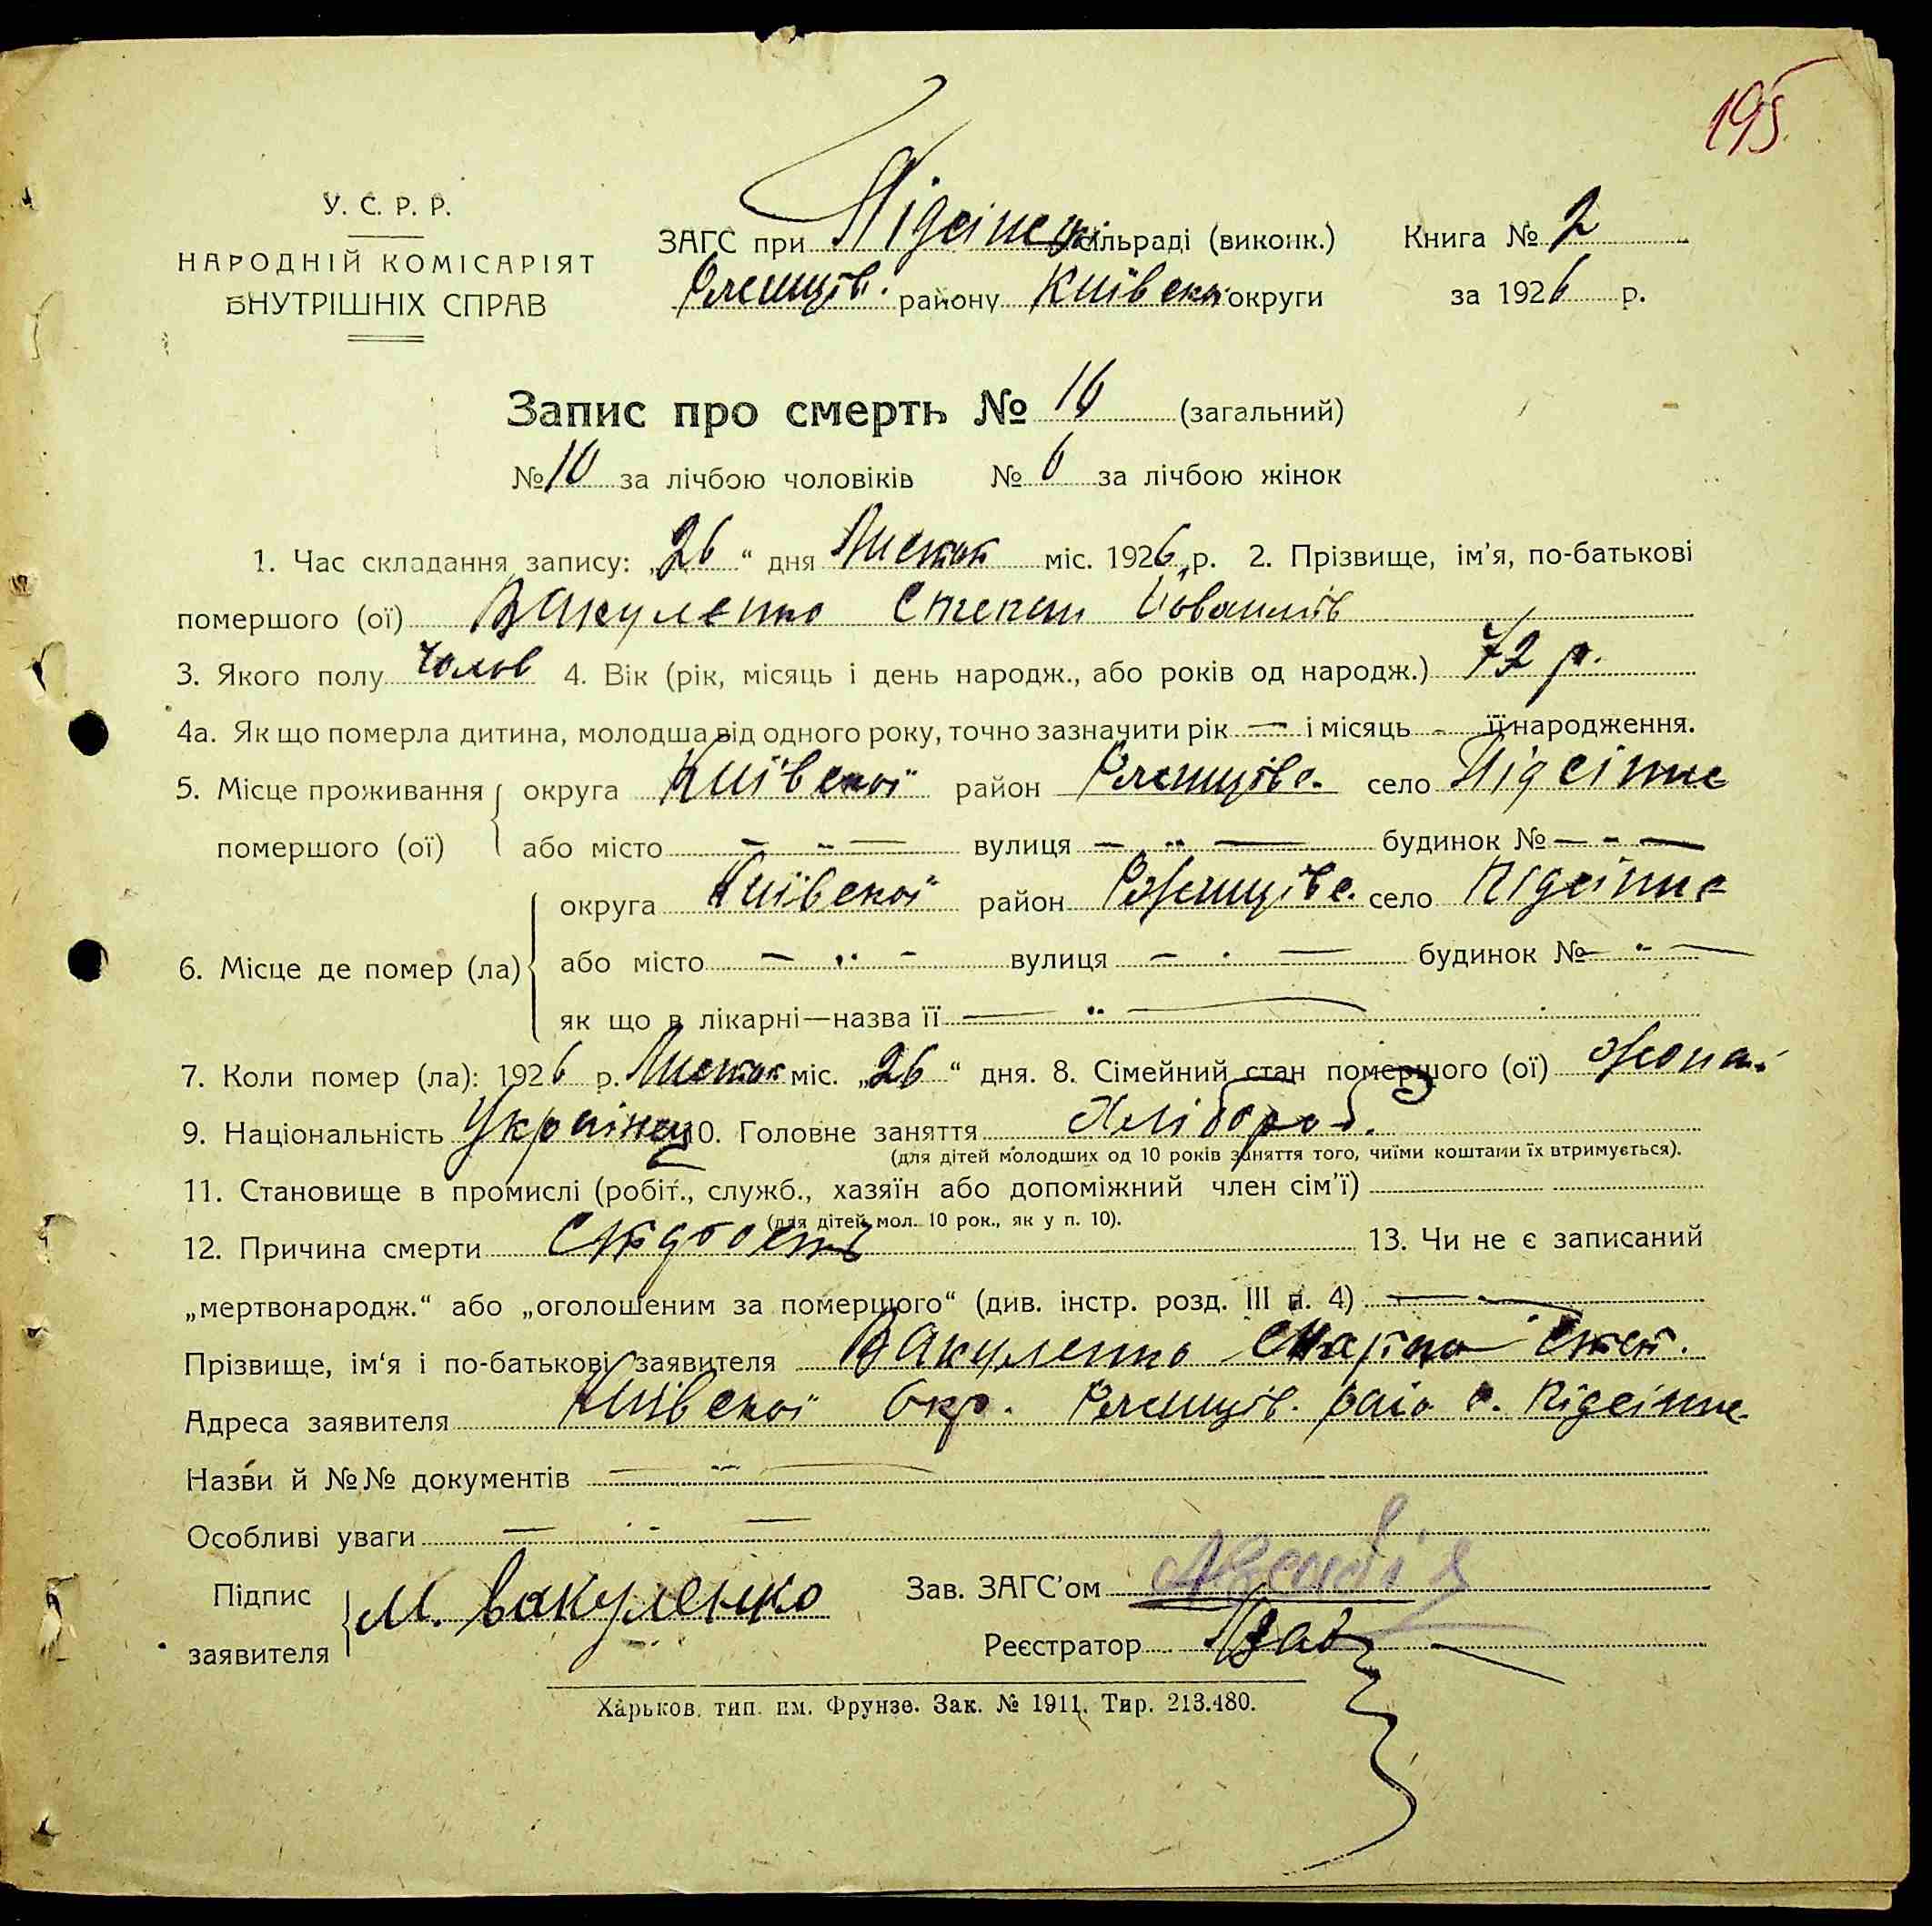 195
У. С. Р. Р.
НАРОДНІЙ КОМІСАРІЯТ
ВНУТРІШНІХ СПРАВ
ЗАГС при Підсінец. сільраді (виконк.) Книга № 2
району Київської округи за 1926 р.
Запис про смерть № 16 (загальний)
№ 10 за лічбою чоловіків № 6 за лічбою жінок
1. Час складання запису: „26“ дня Листоп міс. 1926 р. 2. Прізвище, ім'я, по-батькові
помершого (ої) Вакуленко Степан
3. Якого полу Чолов 4. Вік (рік, місяць і день народж., або років од народж.) 72 р.
4а. Як що померла дитина, молодша від одного року, точно зазначити рік — і місяць - її народження.
5. Місце проживання округа Київської район Ржищівс. село Підсінне
помершого (ої) або місто — „ — вулиця — „ — будинок № — - —
округа Київської район Ржищівс. село Підсінне
6. Місце де помер (ла) або місто — „ - вулиця — . — будинок № — „ —
як що в лікарні—назва її — „ —
7. Коли помер (ла): 1926 р. Листоп міс. „26“ дня. 8. Сімейний стан помершого (ої) жонат
9. Національність Українец 10. Головне заняття Хлібороб.
(для дітей молодших од 10 років заняття того, чиїми коштами їх втримується).
11. Становище в промислі (робіт., служб., хазяїн або допоміжний член сім'ї)
(для дітей мол. 10 рок., як у п. 10).
12. Причина смерти 13. Чи не є записаний
„мертвонародж.“ або „оголошеним за помершого“ (див. інстр. розд. III п. 4) — - —
Прізвище, ім'я і по-батькові заявителя Вакуленко Степ.
Адреса заявителя Київської Окр. Ржищів. райо с. Підсінне
Назви й №№ документів — „ —
Особливі уваги — „ —
Підпис
заявителя М. Вакуленко
Зав. ЗАГС'ом
Реєстратор
Харьков. тип. им. Фрунзе. Зак. № 1911. Тир. 213.480.